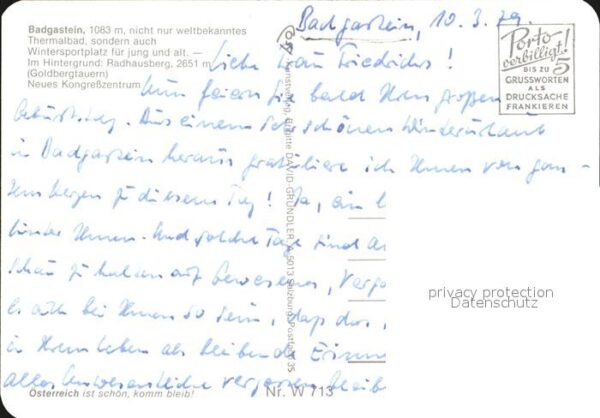 Badgastein, 1083 m, nicht nur weltbekanntes
Thermalbad, sondern auch
Wintersportplatz für jung und alt.
Im Hintergrund: Radhausberg, 2651 m
(Goldbergtauern)
Neues Kongreßzentrum
Badgastein, 10. 3. 79.
Liebe Frau Friedrichs!
Nun feiern Sie bald Ihren großen
Geburtstag. Aus einem sehr schönen Winterurlaub
in Badgastein heraus gratuliere ich Ihnen von gan-
zem Herzen zu diesem Tag! Ja, ein
hinter Ihnen. Und solche Tage sind
zu halten auf Gewesenes,
es auch bei Ihnen so sein, daß das,
in Ihrem Leben als bleibende
alles Unwesentliche vergessen bleib
Porto
verbilligt!
BIS ZU 5
GRUSSWORTEN
ALS
DRUCKSACHE
FRANKIEREN
Kunstverlag, Brigitte DAVID-GRÜNDLER, A-5013 Salzburg, Postfach 35
privacy protection
Datenschutz
Österreich ist schön, komm bleib!
Nr. W 713